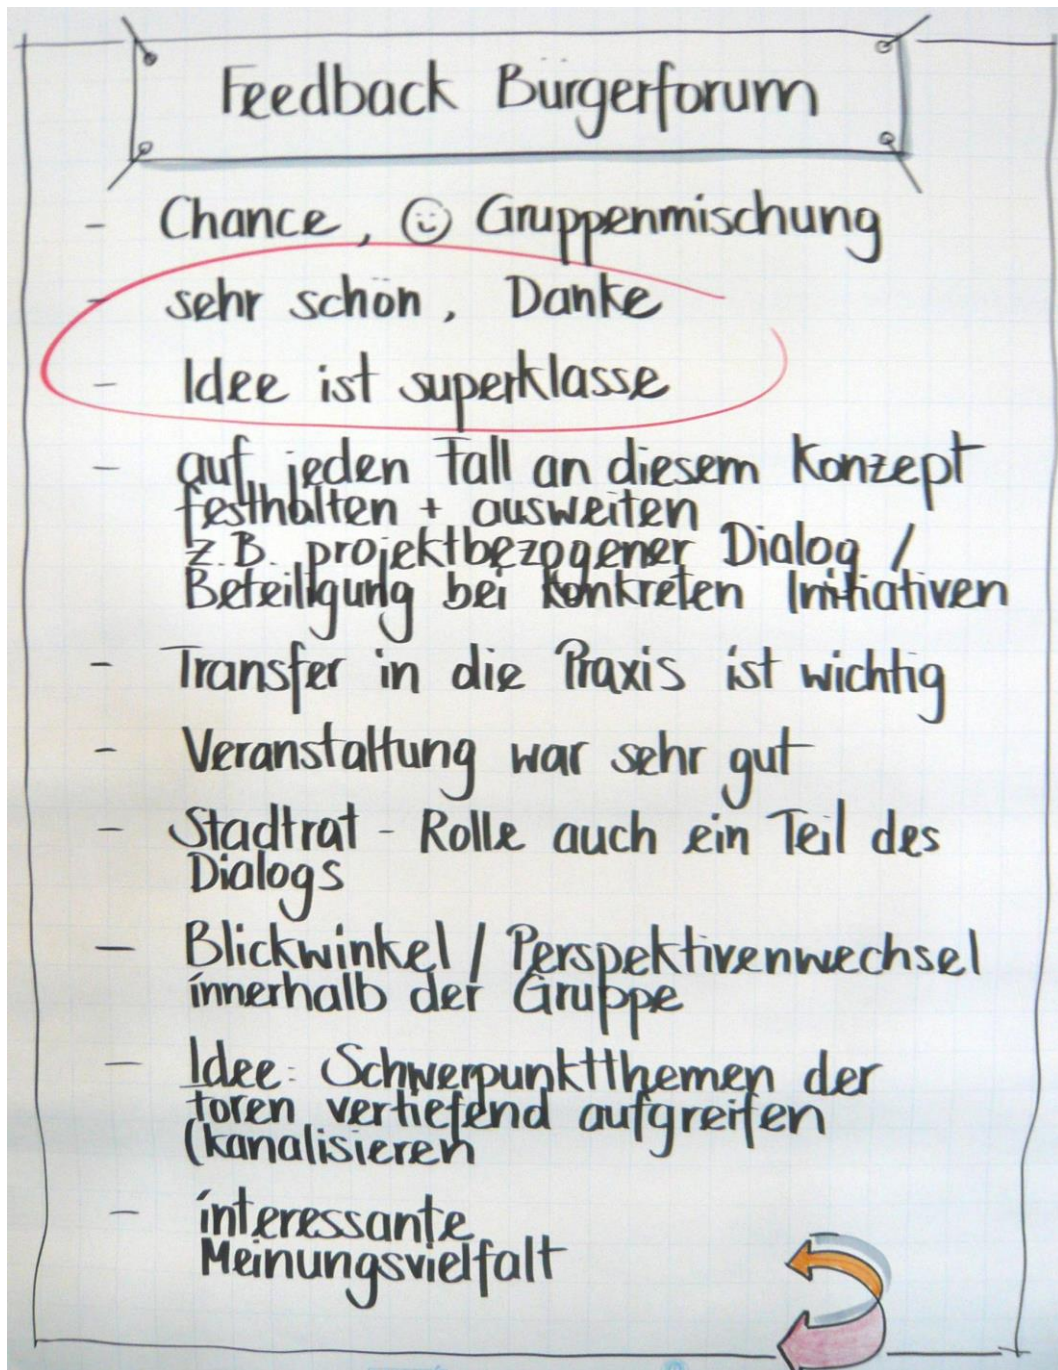 Feedback Bürgerforum
- Chance, ☺ Gruppenmischung
- sehr schön, Danke
- Idee ist superklasse
- auf jeden Fall an diesem Konzept
festhalten + ausweiten
z.B. projektbezogener Dialog /
Beteiligung bei konkreten Initiativen
- Transfer in die Praxis ist wichtig
- Veranstaltung war sehr gut
- Stadtrat - Rolle auch ein Teil des
Dialogs
- Blickwinkel / Perspektivenwechsel
innerhalb der Gruppe
- Idee: Schwerpunktthemen der
Foren vertiefend aufgreifen
(kanalisieren
- interessante
Meinungsvielfalt